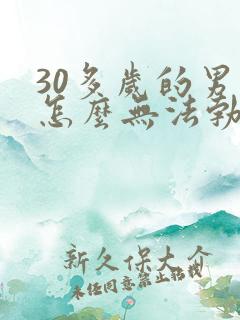 30多歲的男
怎麼無法勃
新久保大介
未任同意禁止轉載